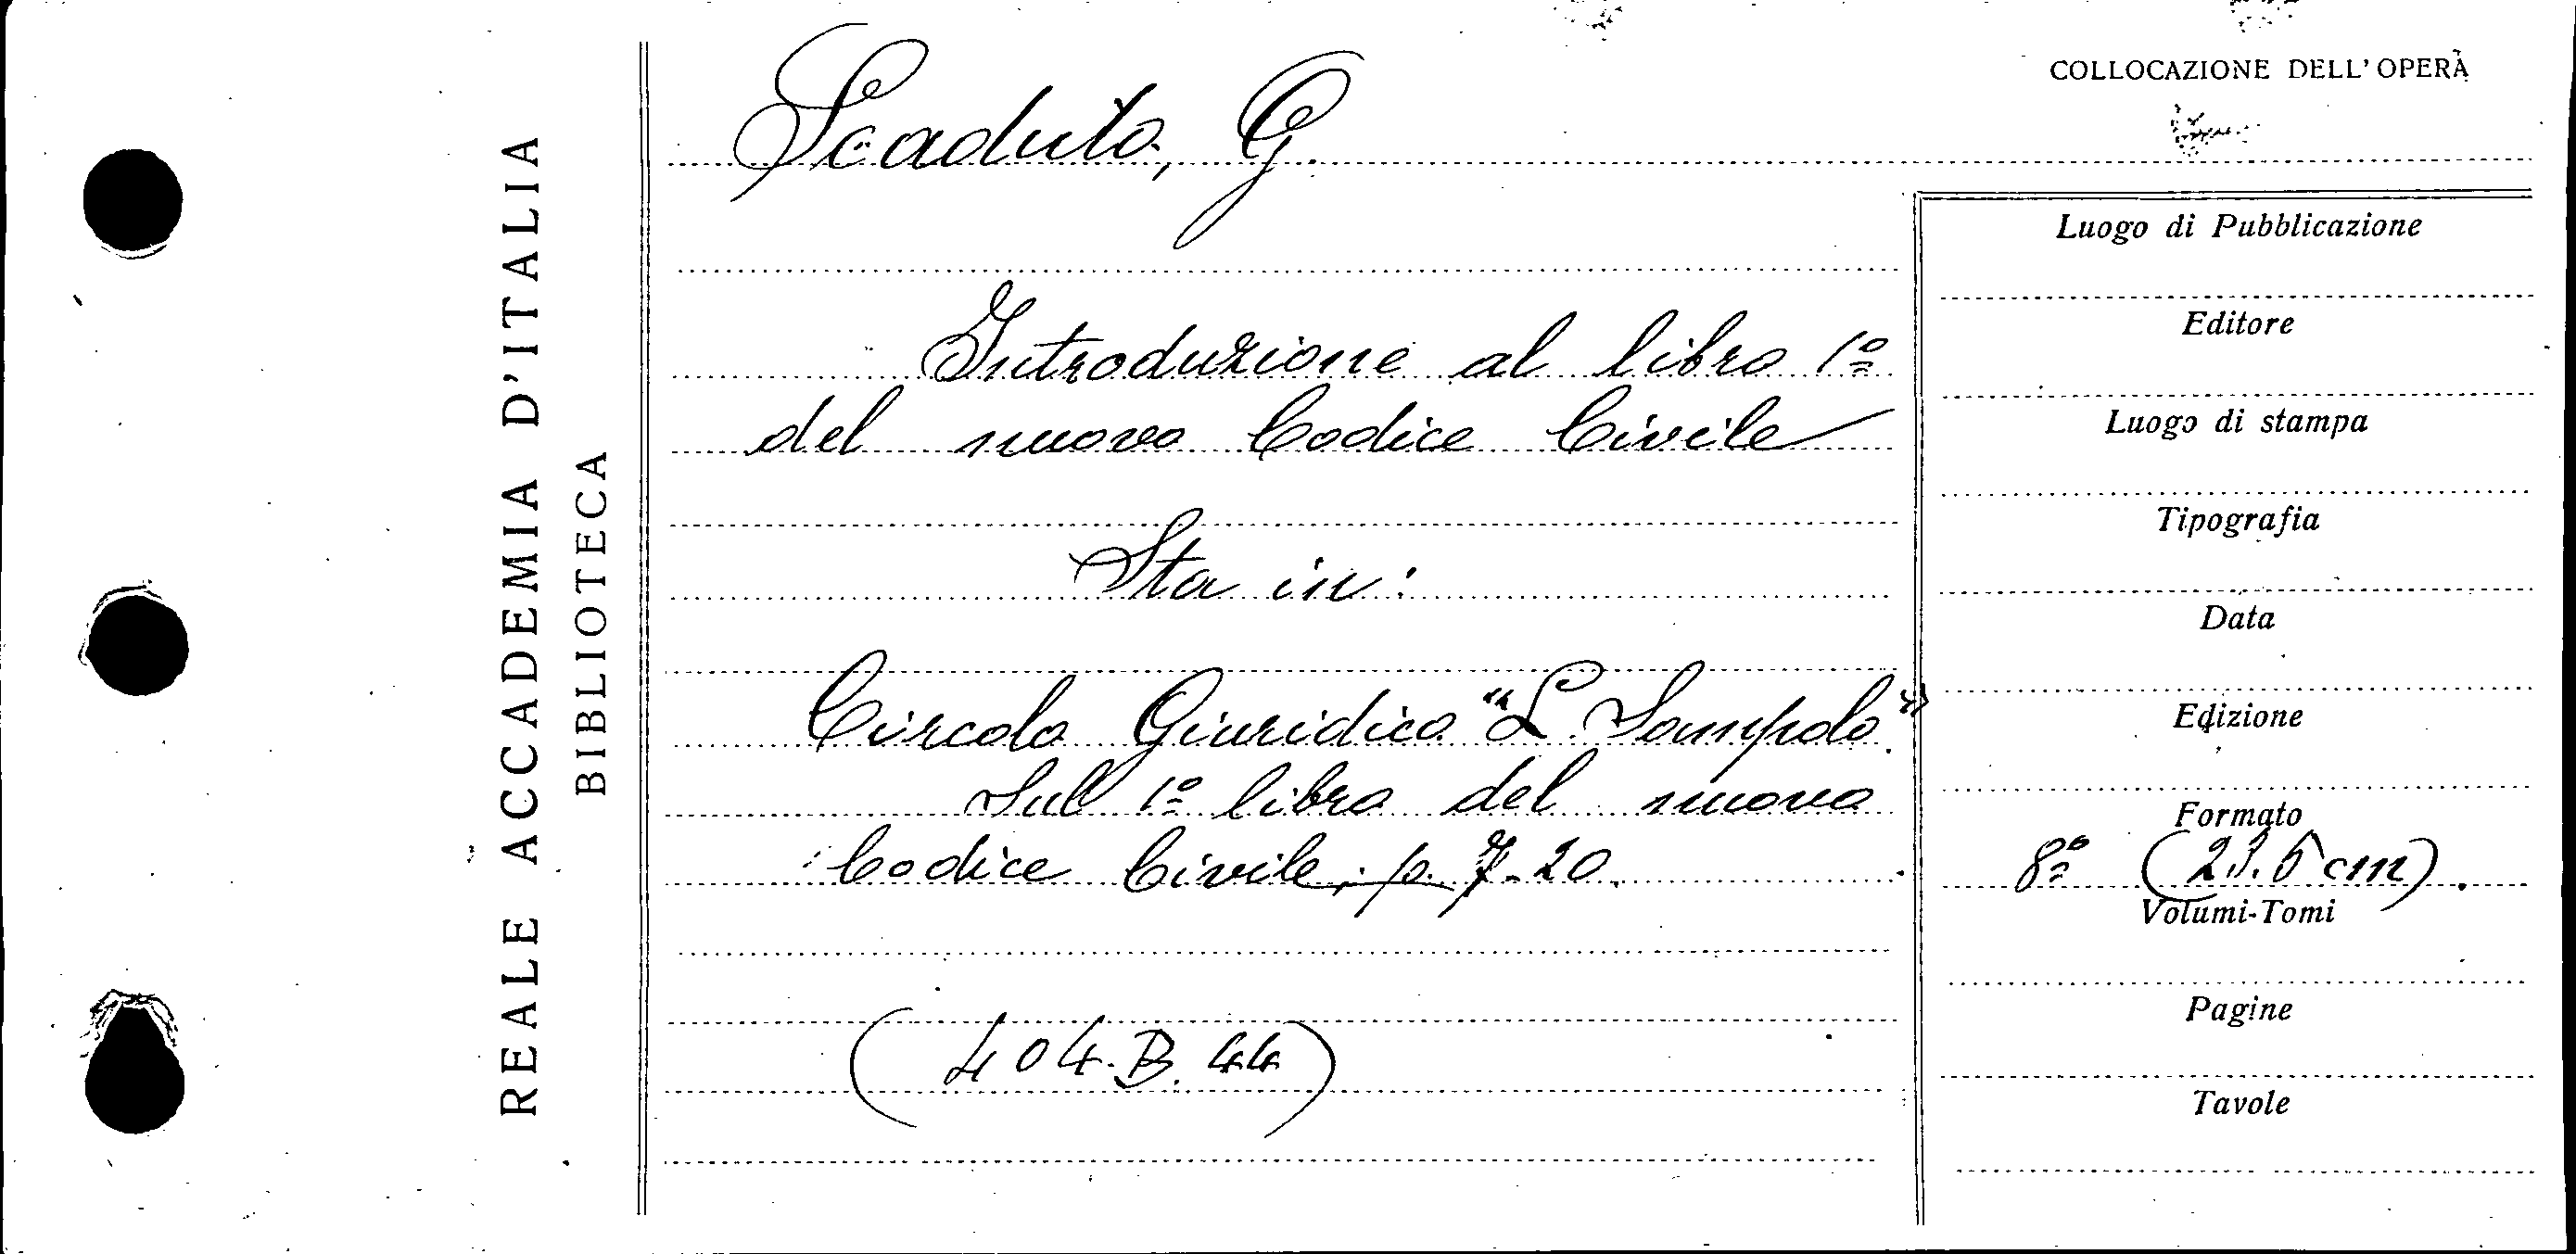 REALE ACCADEMIA D'ITALIA
BIBLIOTECA
Scaduto, G.
Introduzione al libro 1º
del nuovo Codice Civile
Sta in:
Circolo Giuridico "L. Sampolo"
Sul 1º libro del nuovo
Codice Civile, p. 7-20.
(404.B.44)
COLLOCAZIONE DELL'OPERA
Luogo di Pubblicazione
Editore
Luogo di stampa
Tipografia
Data
Edizione
Formato
8º (23.5 cm).
Volumi-Tomi
Pagine
Tavole